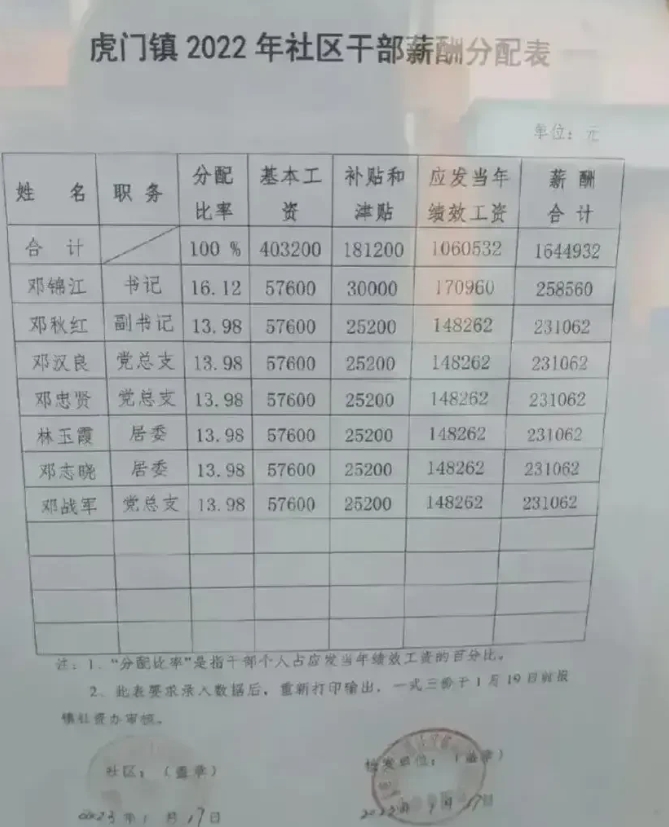 虎门镇2022年社区干部薪酬分配表
单位：元
姓 名 职 务 分配比率 基本工资 补贴和津贴 应发当年绩效工资 薪酬合计
合 计 100 % 403200 181200 1060532 1644932
邓锦江 书记 16.12 57600 30000 170960 258560
邓秋红 副书记 13.98 57600 25200 148262 231062
邓汉良 党总支 13.98 57600 25200 148262 231062
邓忠贤 党总支 13.98 57600 25200 148262 231062
林玉霞 居委 13.98 57600 25200 148262 231062
邓志晓 居委 13.98 57600 25200 148262 231062
邓战军 党总支 13.98 57600 25200 148262 231062
注：1、“分配比率”是指干部个人占应发当年绩效工资的百分比。
2、此表要求录入数据后，重新打印输出，一式三份于1月19日前报
镇社资办审核。
社区：（盖章） 核发单位：（盖章）
2023年1月17日 月17日